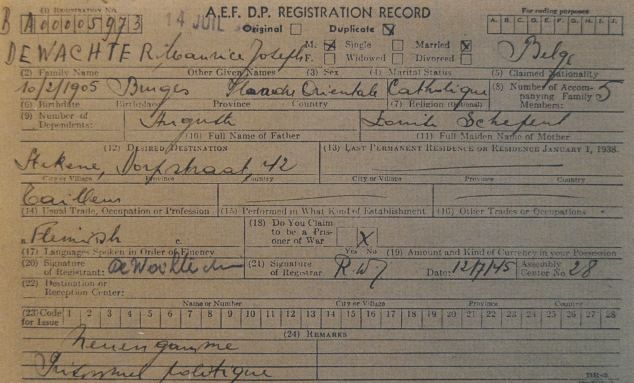 (1) REGISTRATION NO. A.E.F. D.P. REGISTRATION RECORD For coding purposes
B A00005973 14 JUIL Original Duplicate X A. B. C. D. E. F. G. H. I. J.
DEWACHTER Maurice Joseph M. X Single Married X Belge
F. Widowed Divorced
(2) Family Name Other Given Names (3) Sex (4) Marital Status (5) Claimed Nationality
10/2/1905 Bruges Flandre Orientale Catholique (8) Number of Accompanying Family Members: 5
(6) Birthdate Birthplace Province Country (7) Religion (Optional)
(9) Number of Dependents: Auguste Schepens
(10) Full Name of Father (11) Full Maiden Name of Mother
(12) DESIRED DESTINATION (13) LAST PERMANENT RESIDENCE OR RESIDENCE JANUARY 1, 1938.
Stekene, Dorpstraat, 42
City or Village Province Country City or Village Province Country
Tailleur
(14) Usual Trade, Occupation or Profession (15) Performed in What Kind of Establishment (16) Other Trades or Occupations
a. Flemish c. (18) Do You Claim to be a Prisoner of War X
Yes No
(17) Languages Spoken in Order of Fluency (19) Amount and Kind of Currency in your Possession
(20) Signature of Registrant: (21) Signature of Registrar: Date: 12/7/45 Assembly Center No. 28
(22) Destination or Reception Center:
Name or Number City or Village Province Country
(23) Code for Issue 1 2 3 4 5 6 7 8 9 10 11 12 13 14 15 16 17 18 19 20 21 22 23 24 25 26 27 28
(24) REMARKS
Neuengamme
Prisonnier politique